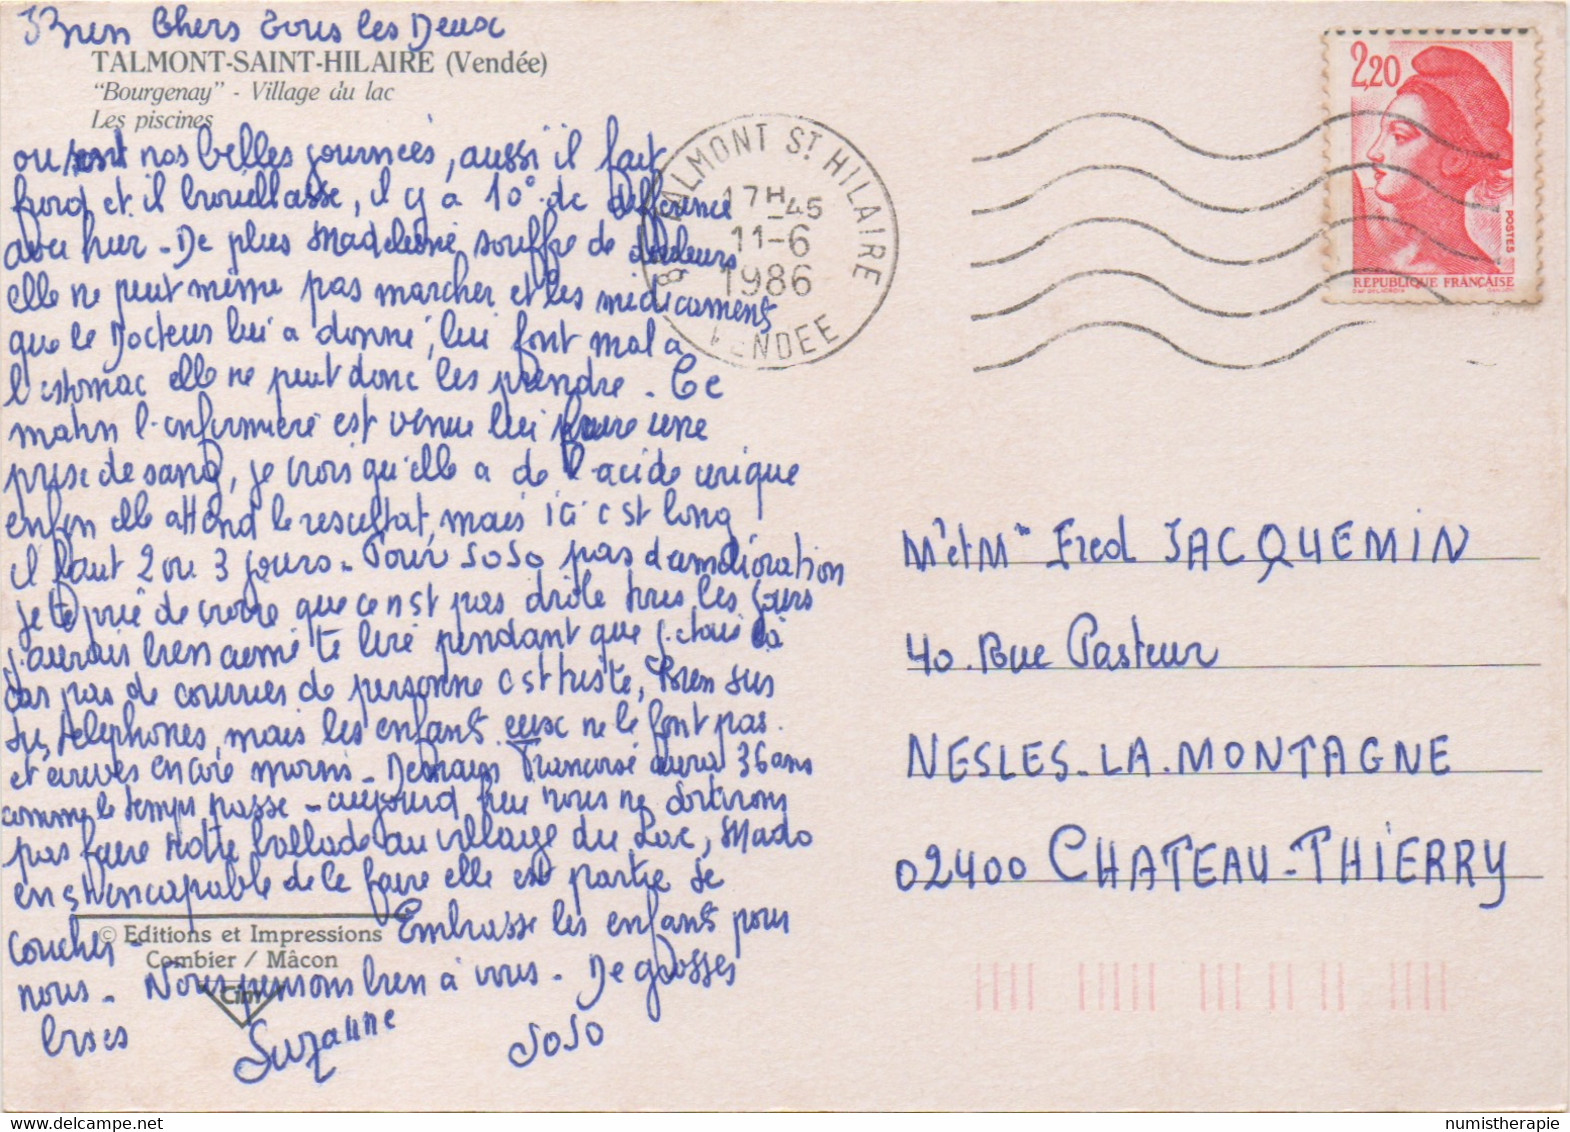 Bien Chers Tous les Deux
TALMONT-SAINT-HILAIRE (Vendée)
"Bourgenay" - Village du lac
Les piscines
ou sont nos belles journées, aussi il fait
froid et il brouillasse, il y a 10° de différence
avec hier - De plus Madeleine souffre de douleurs
elle ne peut même pas marcher et les médicaments
que le Docteur lui a donné, lui font mal a
l'estomac elle ne peut donc les prendre - Ce
matin l'infirmière est venue lui faire une
prise de sang, je crois qu'elle a de l'acide urique
enfin elle attend le resultat, mais ici c est long
il faut 2 ou 3 jours - Pour SoSo pas d'amélioration
je te prie de croire que ce n'st pas drôle tous les jours
j'aurais bien aimé te lire pendant que j'étais là
car pas de courrier de personne c st triste, Bien sur
tu, telephones, mais les enfants eux ne le font pas.
et écrives encore moins - Demain Francoise aura 36 ans
comme le temps passe - aujourd hui nous ne sortirons
pas faire notre ballade au village du Lac, Mado
en st incapable de le faire elle est partie se
coucher - Embrasse les enfants pour
nous - Nous pensons bien à vous - De grosses
bises Suzanne SoSo
© Editions et Impressions
Combier / Mâcon
Cim
TALMONT ST HILAIRE
17H-45
11-6
1986
VENDEE
2,20
POSTES
REPUBLIQUE FRANÇAISE
Mr et Mme Fred JACQUEMIN
40. Rue Pasteur
NESLES-LA-MONTAGNE
02400 CHATEAU-THIERRY
numistherapie